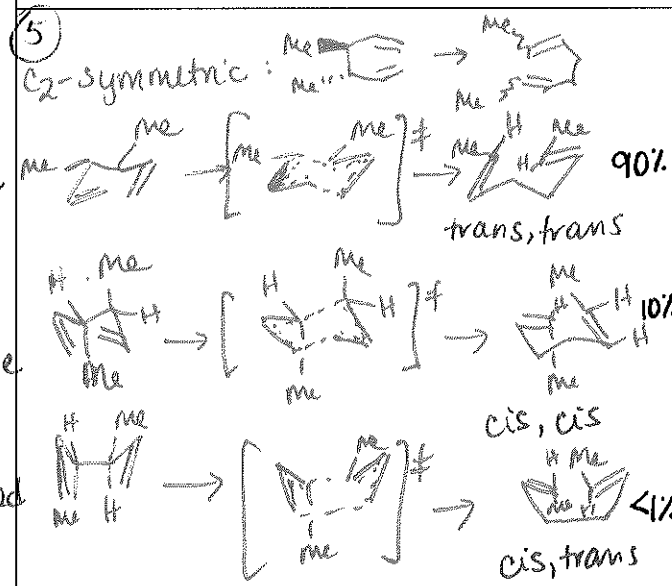 5
C2-symmetric :
Me
Me'''
Me
Me
Me
Me
Me
Me
Me
H
Me
H
‡
90%
trans, trans
H
Me
H
Me
H
Me
H
Me
‡
Me
H
H
H
Me
10%
e
cis, cis
H
Me
Me
H
Me
Me
‡
H
Me
Me
H
<1%
ed
cis, trans